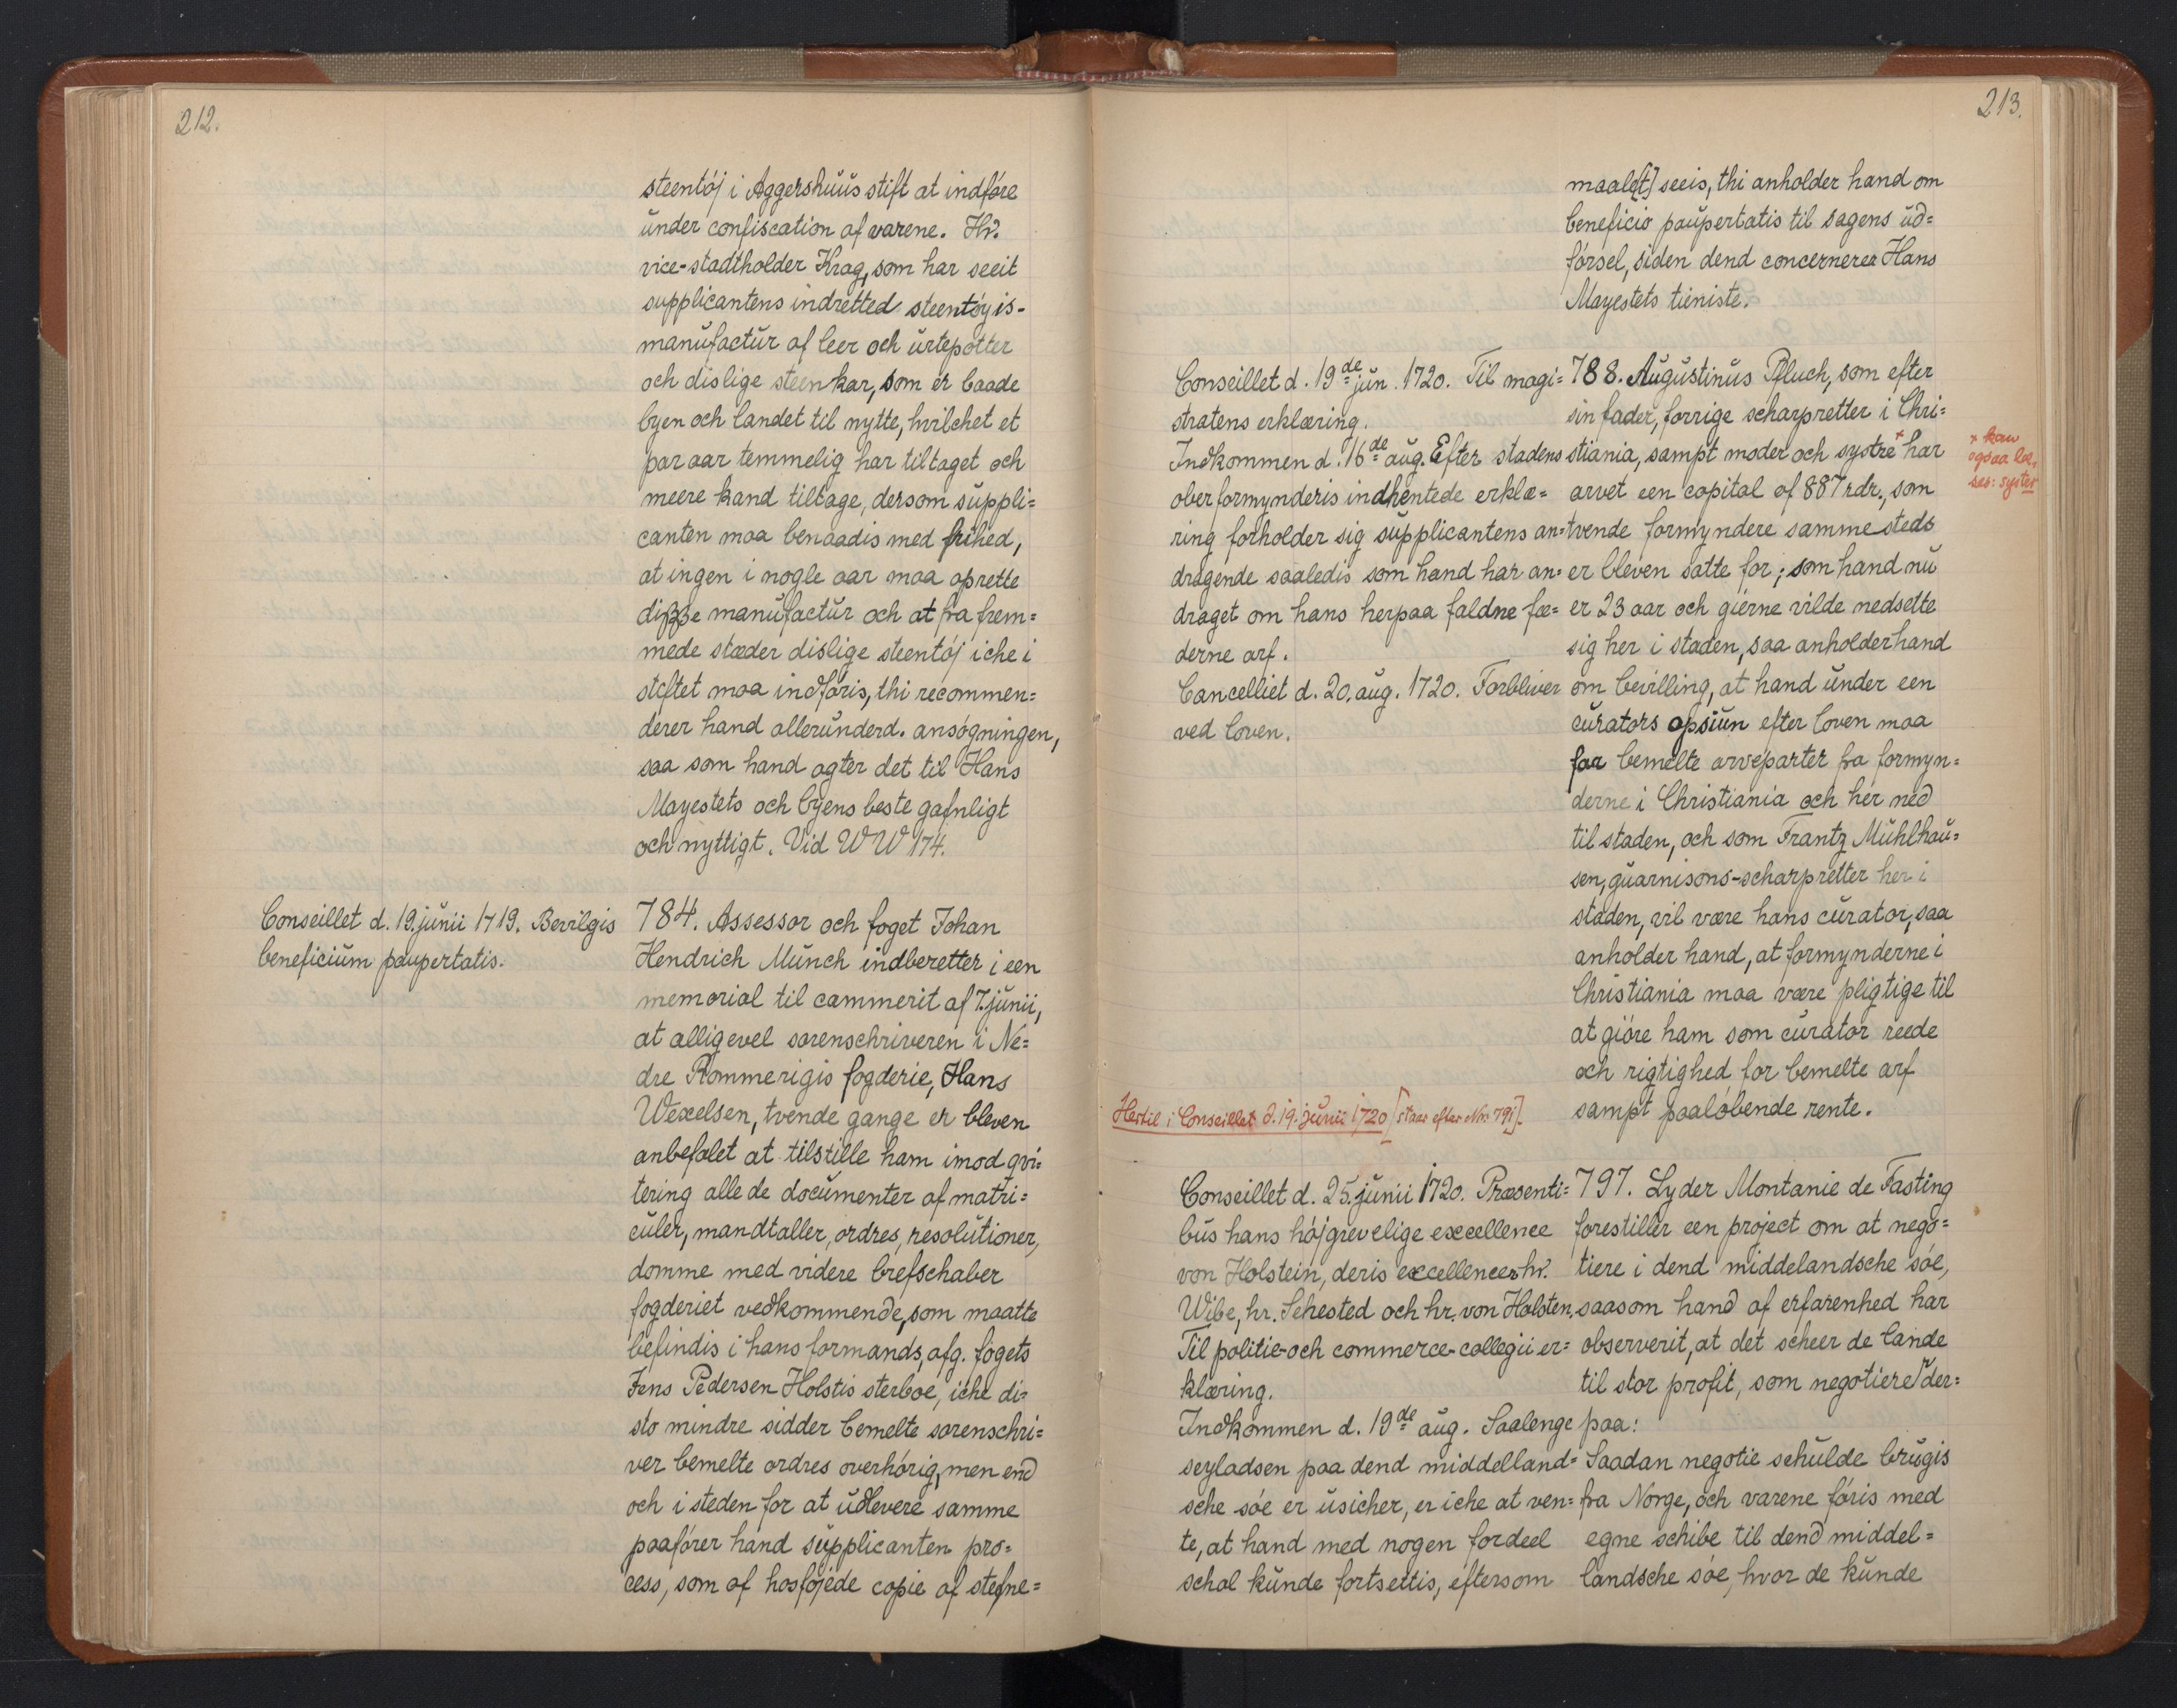 212.
steentöj i Aggershuus stift at indföre
under confiscation af varene. Hr.
vice-stadtholder Krag, som har seeit
supplicantens indretted steentöyis-
manufactur af leer och urtepotter
och dislige steenkar, som er baade
byen och landet til nytte, hvilchet et
par aar temmelig har tiltaget och
meere kand tiltage, dersom suppli=
canten maa benaadis med frihed,
at ingen i nogle aar maa oprette
disse manufactur och at fra frem=
mede stæder dislige steentöj iche i
stiftet maa indföris, thi recommen=
derer hand allerunderd. ansögningen,
saa som hand agter det til Hans
Mayestets och byens beste gafnligt
och nyttigt. Vid WW 174.
Conseillet d. 19. junii 1719. Bevilgis
beneficium paupertatis.
784. Assessor och foget Johan
Hendrich Munch indberetter i een
memorial til cammerit af 7. junii,
at alligevel sorenschriveren i Ne=
dre Rommerigis fogderie, Hans
Wexelsen, tvende gange er bleven
anbefalet at tilstille ham imod qvi=
tering alle de documenter af matri=
culer, mandtaller, ordres, resolutioner,
domme med videre brefschaber
fogderiet vedkommende, som maatte
befindis i hans formands, afg. fogets
Jens Pedersen Holstis sterboe, iche di=
sto mindre sidder bemelte sorenschri=
ver bemelte ordres overhörig, men end
och i steden for at udlevere samme
paaförer hand supplicanten pro=
cess, som af hosföjede copie af stefne=
213.
maale[t] seeis, thi anholder hand om
beneficio paupertatis til sagens ud=
försel, siden dend concernerer Hans
Mayestets tieniste.
Conseillet d. 19de jun. 1720. Til magi=
stratens erklæring.
Indkommen d. 16de aug. Efter stadens
oberformynderis indhentede erklæ=
ring forholder sig supplicantens an=
dragende saaledis som hand har an=
draget om hans herpaa faldne fæ=
derne arf.
Cancelliet d. 20. aug. 1720. Forbliver
ved loven.
788. Augustinus Pfluch, som efter
sin fader, forrige scharpretter i Chri=
stiania, sampt moder och systre × har
arvet een capital af 887 rdr., som
tvende formyndere samme steds
er bleven satte for; som hand nu
er 23 aar och gierne vilde nedsette
sig her i staden, saa anholder hand
om bevilling, at hand under een
curators opsiun efter loven maa
faa bemelte arveparter fra formyn=
derne i Christiania och her ned
til staden, och som Frantz Mühlhau=
sen, guarnisons-scharpretter her i
staden, vil være hans curator, saa
anholder hand, at formynderne i
Christiania maa være pligtige til
at giöre ham som curator reede
och rigtighed for bemelte arf
sampt paalöbende rente.
× kan
ogsaa læ-
ses: syster
Hertil i Conseillet d. 19. junii 1720 [staar efter No. 791].
Conseillet d. 25. junii 1720. Præsenti=
bus hans höjgrevelige excellence
von Holstein, deris excellencer hr.
Wibe, hr. Sehested och hr. von Holsten.
Til politie- och commerce-collegii er=
klæring.
Indkommen d. 19de aug. Saalenge
seyladsen paa dend middelland=
sche söe er usicher, er iche at ven=
te, at hand med nogen fordeel
schal kunde fortsettis, eftersom
797. Lyder Montanie de Fasting
forestiller een project om at nego=
tiere i dend middelandsche söe,
saasom hand af erfarenhed har
observerit, at det scheer de lande
til stor profit, som negotiere der=
paa:
Saadan negotie schulde brugis
fra Norge, och varene föris med
egne schibe til dend middel=
landsche söe, hvor de kunde